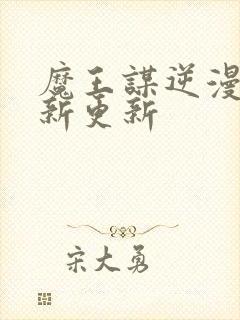 魔王謀逆漫
新更新
宋大勇